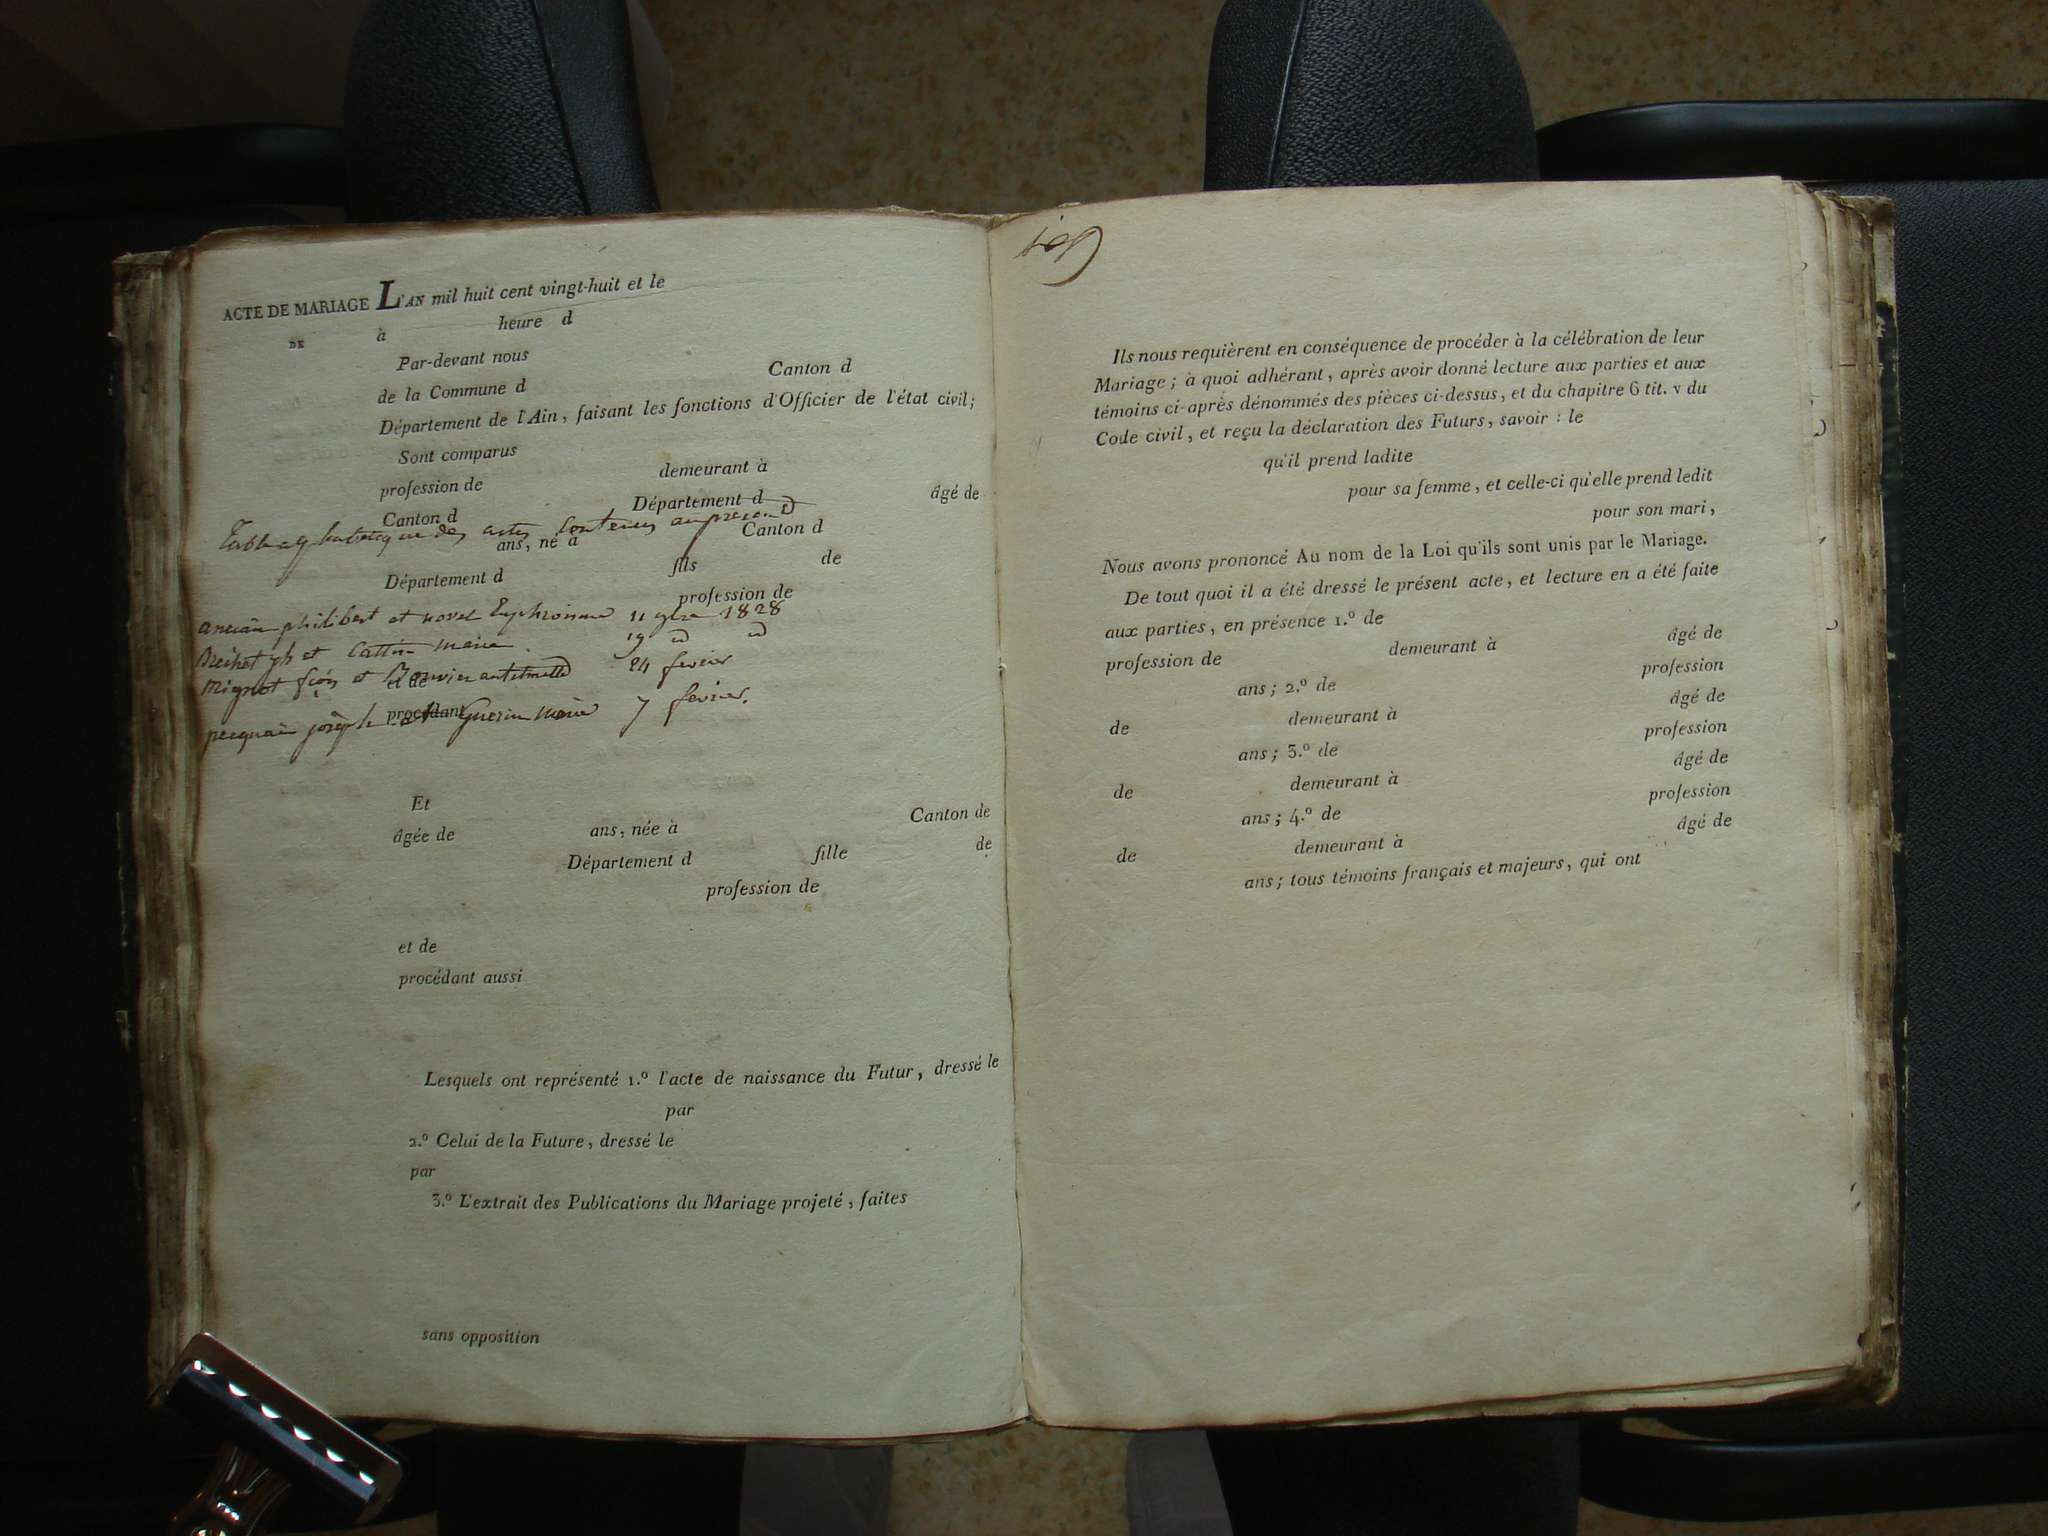 ACTE DE MARIAGE L'AN mil huit cent vingt-huit et le
DE à heure d
Par-devant nous
de la Commune d Canton d
Département de l'Ain, faisant les fonctions d'Officier de l'état civil;
Sont comparus
profession de demeurant à
Canton d Département d âgé de
Table alphabetique des actes contenus au present
ans, né à Canton d
Département d fils de
profession de
ancian philibert et novel Euphrosinne 11 9bre 1828
Brichet ph et Cattin marie 19 d d
Mignot et Bouvier 24 fevrier
et de
pecquain joseph et Guerin marie 7 fevrier.
procédant
Et
âgée de ans, née à Canton de
Département d fille de
profession de
et de
procédant aussi
Lesquels ont représenté 1.º l'acte de naissance du Futur, dressé le
par
2.º Celui de la Future, dressé le
par
3.º L'extrait des Publications du Mariage projeté, faites
sans opposition
Ils nous requièrent en conséquence de procéder à la célébration de leur
Mariage; à quoi adhérant, après avoir donné lecture aux parties et aux
témoins ci-après dénommés des pièces ci-dessus, et du chapitre 6 tit. v du
Code civil, et reçu la déclaration des Futurs, savoir : le
qu'il prend ladite
pour sa femme, et celle-ci qu'elle prend ledit
pour son mari,
Nous avons prononcé Au nom de la Loi qu'ils sont unis par le Mariage.
De tout quoi il a été dressé le présent acte, et lecture en a été faite
aux parties, en présence 1.º de
profession de demeurant à âgé de
ans; 2.º de profession
de demeurant à âgé de
ans; 3.º de profession
de demeurant à âgé de
ans; 4.º de profession
de demeurant à âgé de
ans; tous témoins français et majeurs, qui ont